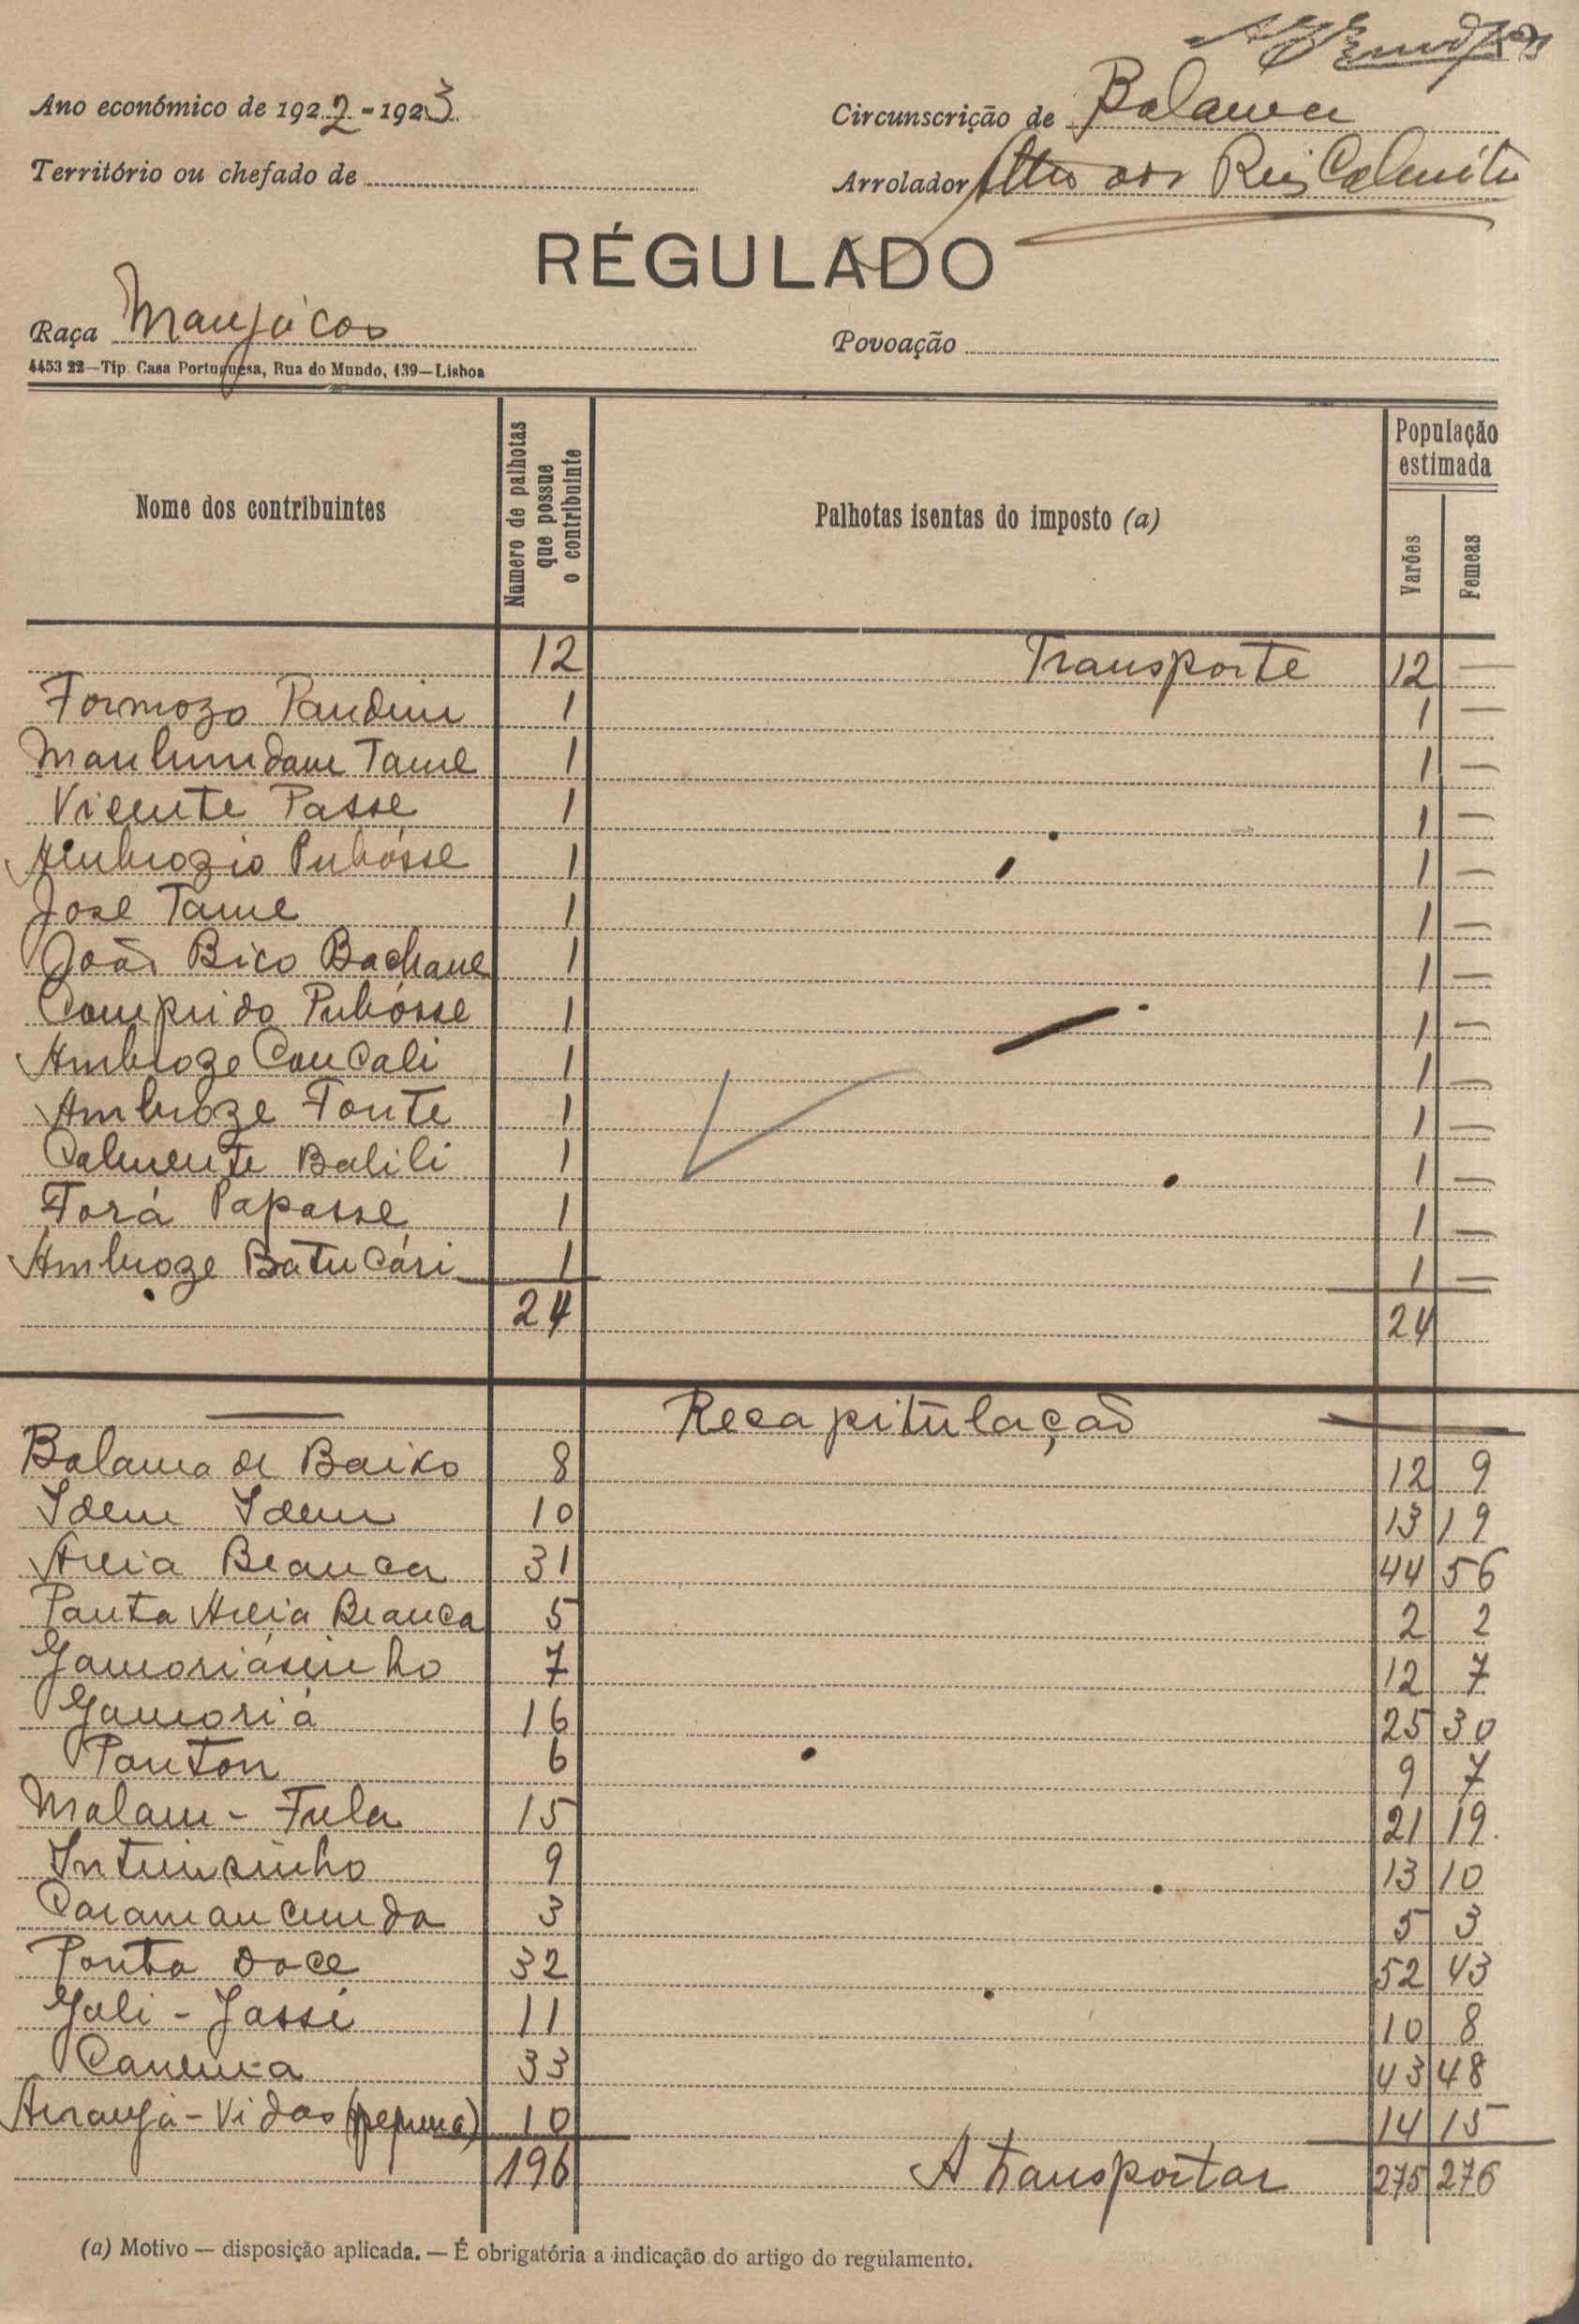 Ano económico de 1922-1923
Circunscrição de Bolama
Território ou chefado de
Arrolador
RÉGULADO
Raça Manjácos
Povoação
4453 22—Tip. Casa Portuguesa, Rua do Mundo, 139—Lisboa
Nome dos contribuintes
Número de palhotas que possue o contribuinte
Palhotas isentas do imposto (a)
População estimada
Varões
Femeas
12 Transporte 12 —
Formozo 1 1 —
Tame 1 1 —
Vicente Passe 1 1 —
Ambrozio Pubósse 1 1 —
José Tame 1 1 —
João Bico Bachane 1 1 —
Comprido Pubósse 1 1 —
Ambroze Cancali 1 1 —
Ambroze Fonte 1 1 —
Balili 1 1 —
Torá Papasse 1 1 —
Ambroze Batucári 1 1 —
24 24
— Recapitulação —
Bolama de Baixo 8 12 9
Idem Idem 10 13 19
Areia Branca 31 44 56
Ponta Areia Branca 5 2 2
Gamoriásinho 7 12 7
Gamoriá 16 25 30
Panton 6 9 7
Malam - Fula 15 21 19
9 13 10
3 5 3
Ponta Doce 32 52 43
Gali - Jassi 11 10 8
33 43 48
10 14 15
196 A transportar 275 276
(a) Motivo — disposição aplicada. — É obrigatória a indicação do artigo do regulamento.